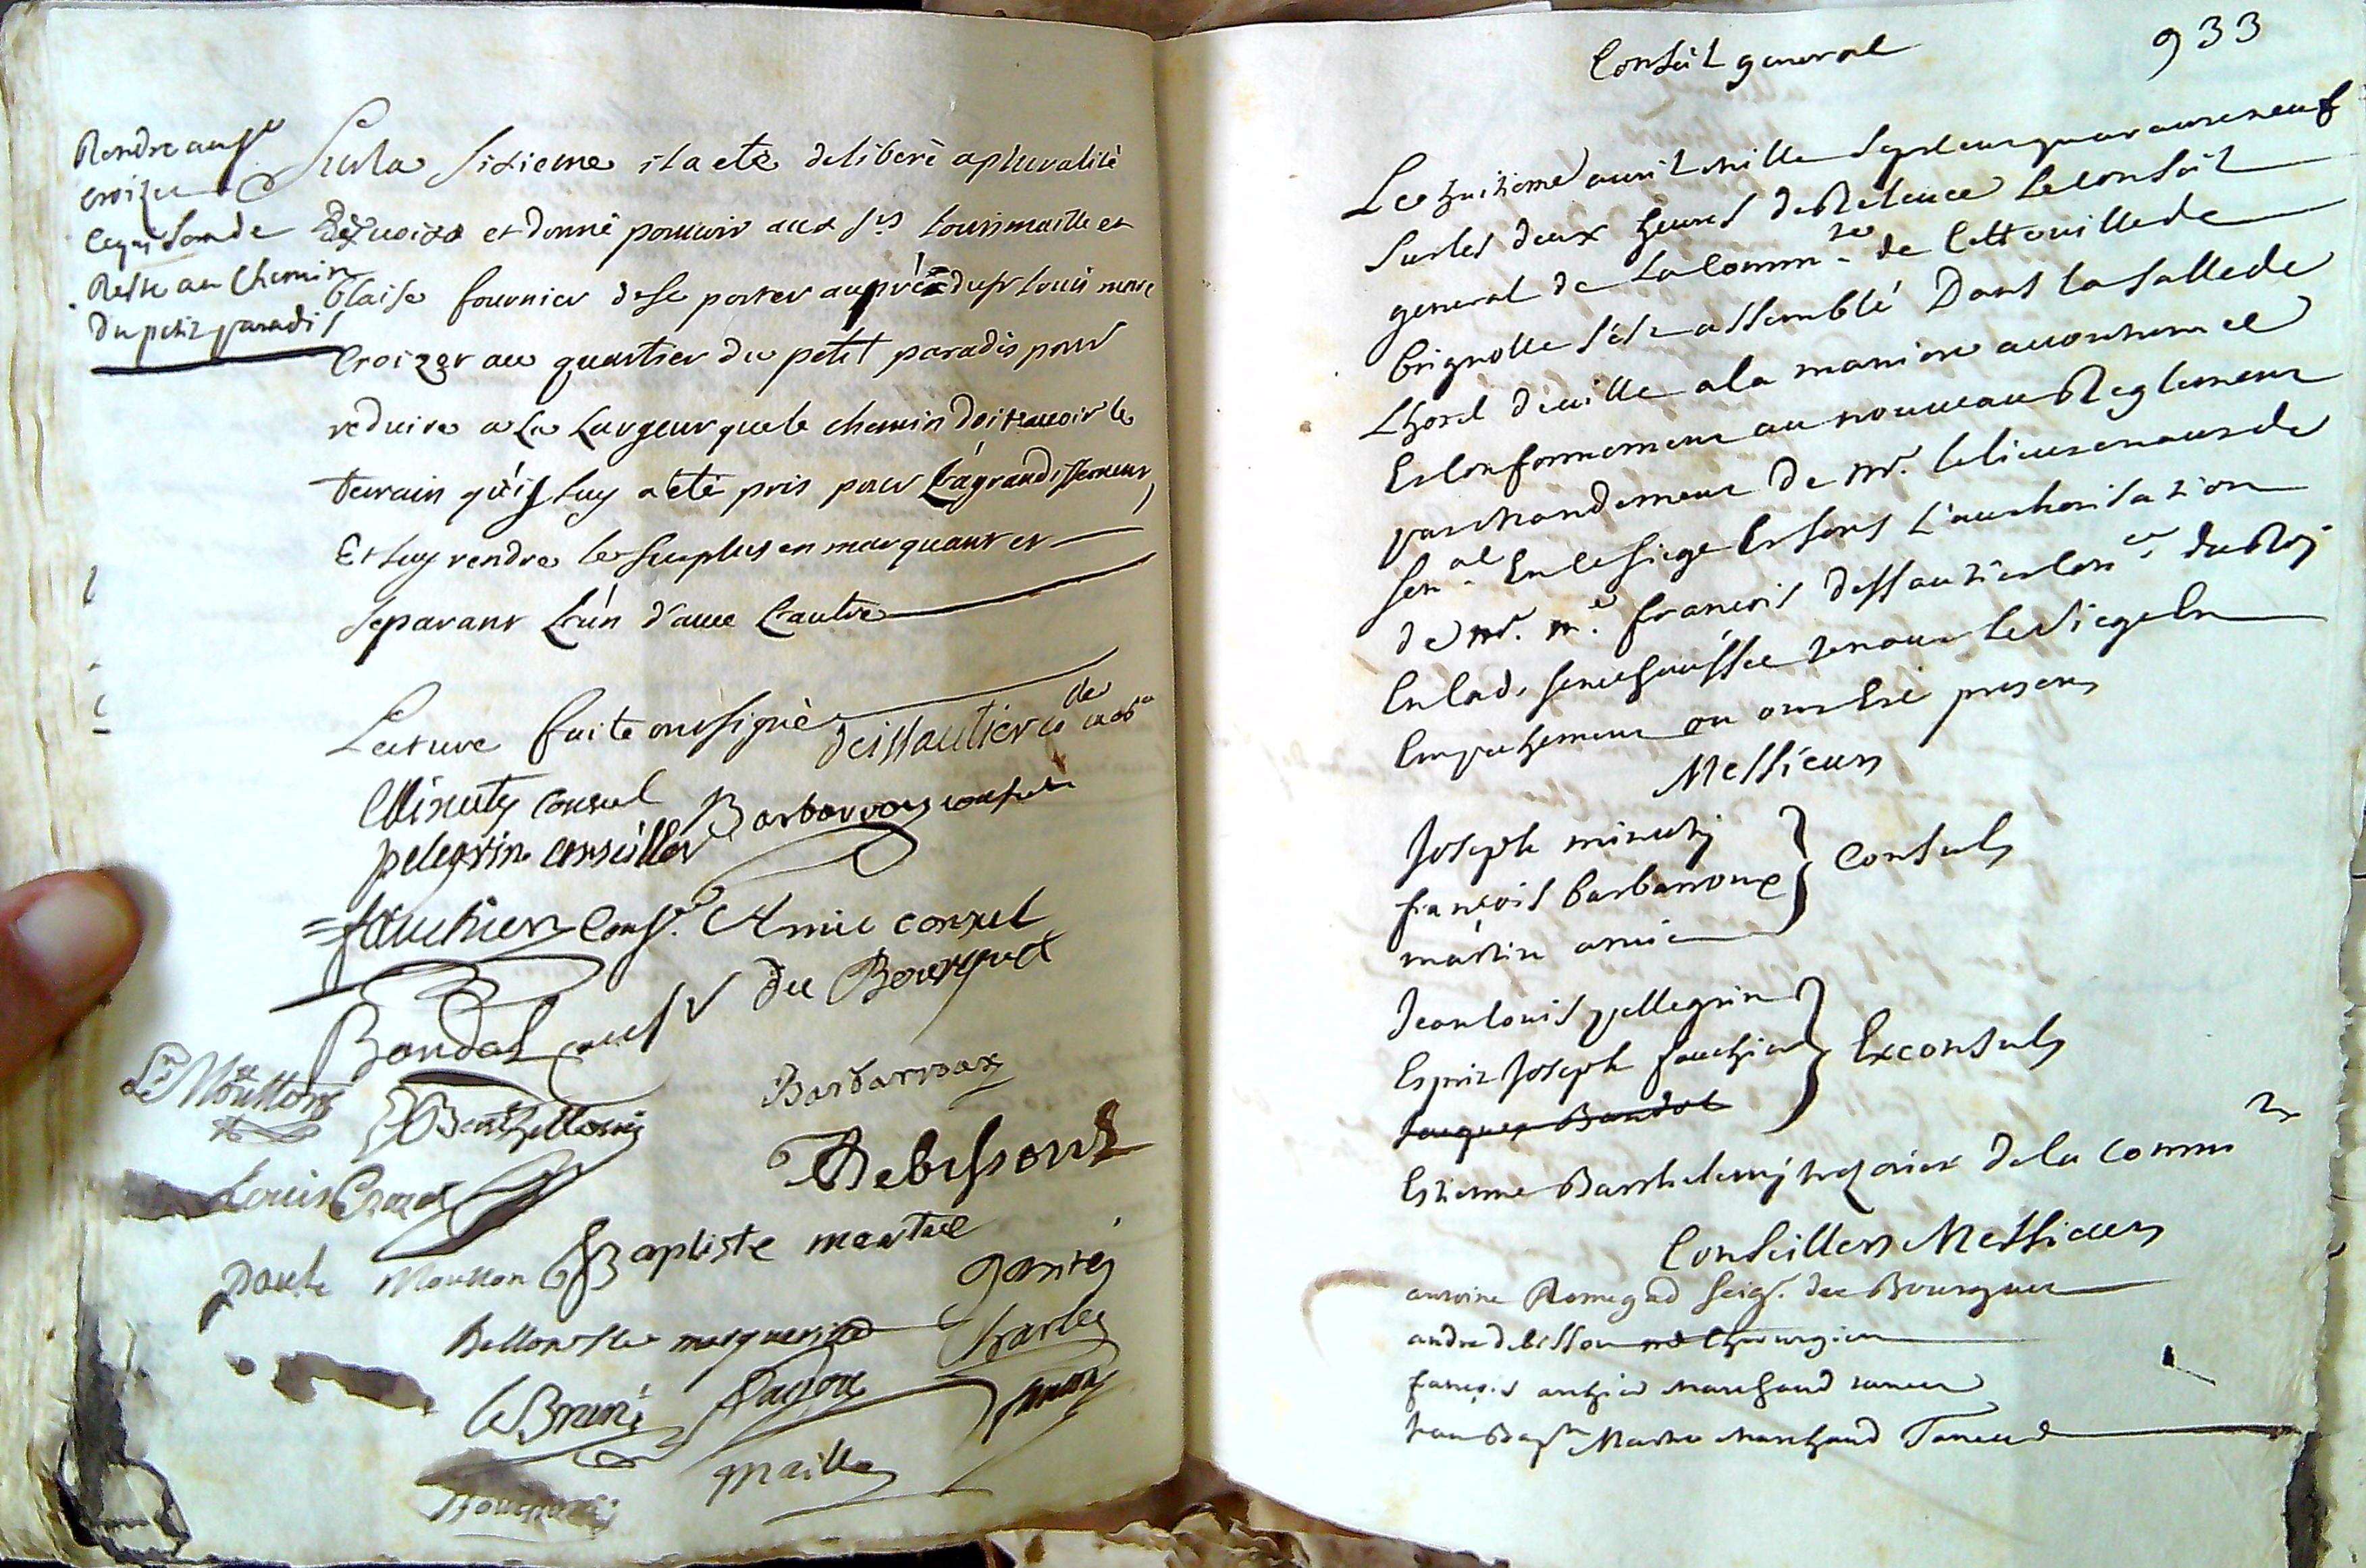 Rendre au sr
croizer
ce qui sera de
Reste au Chemin
du petit paradis
Sur la sixieme il a eté deliberé a pluralité
de voix et donné pouvoir aux srs Louis maille et
blaise fournier de se porter auprés du sr Louis
Croizer au quartier du petit paradis pour
reduire a La Largeur que le chemin doit avoir le
terrain qu'il Luy a eté pris pour L'agrandissement,
Et Luy rendre le surplus en marquant et
separant L'un d'avec L'autre
Lecture faite ont signé
deissautier
Minuty consul Barbarroux consul
pelegrin conseiller
fauchier cons. Amic consul
Bandol du Bourguet
Barbarroux
Barthellemy
Debissout
Louis
Baptiste martre
paul Mouton
gantei
Bellon
charles
le Brun
maille
933
Conseil general
Le huitieme avril mille sept cens quarante neuf
sur les deux heures de Relevée Le conseil
general de La Commté de Cette ville de
brignolle s'est assemblé Dans la salle de
L'hotel de ville a la maniere accoutumée
Et Conformement au nouveau Reglement
par Mandement de Mr. le lieutenant de
sen.al En le siege Et sous L'authorisation
de Mr. Me. francois dessautier Coner. du Roy
En lad. senechaussée tenant le siege En
Empechement ou ont Eté presens
Messieurs
Joseph minuty
françois barbarroux } Consuls
martin amic
Jean louis pellegrin
Esprit Joseph fauchier } Exconsuls
Jacques Bandol
Estienne Barthelemy trezorier de la Commté
Conseillers Messieurs
antoine Romegad seigr. du Bourguet
andre debissou me chirurgien
françois authier marchand taneur
Jean Bapte Martre marchand Taneur